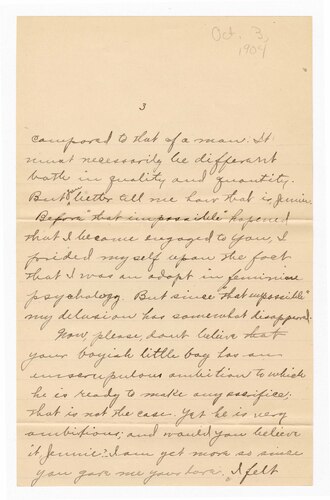 Oct. 3,
1904
3
compared to that of a man. It
must necessarily be different
both in quality and quantity.
But better tell me how that is, Jennie.
Before "that impossible" hapened
that I became engaged to you, I
prided myself upon the fact
that I was an adept in feminine
psychology. But since "that impossible"
my delusion has somewhat disappeared.
Now, please, dont believe that
your boyish little boy has an
unscrupulous ambition to which
he is ready to make any sacrifice;
that is not the case. Yet he is very
ambitious; and would you believe
it Jennie? I am yet more so since
you gave me your love. I felt